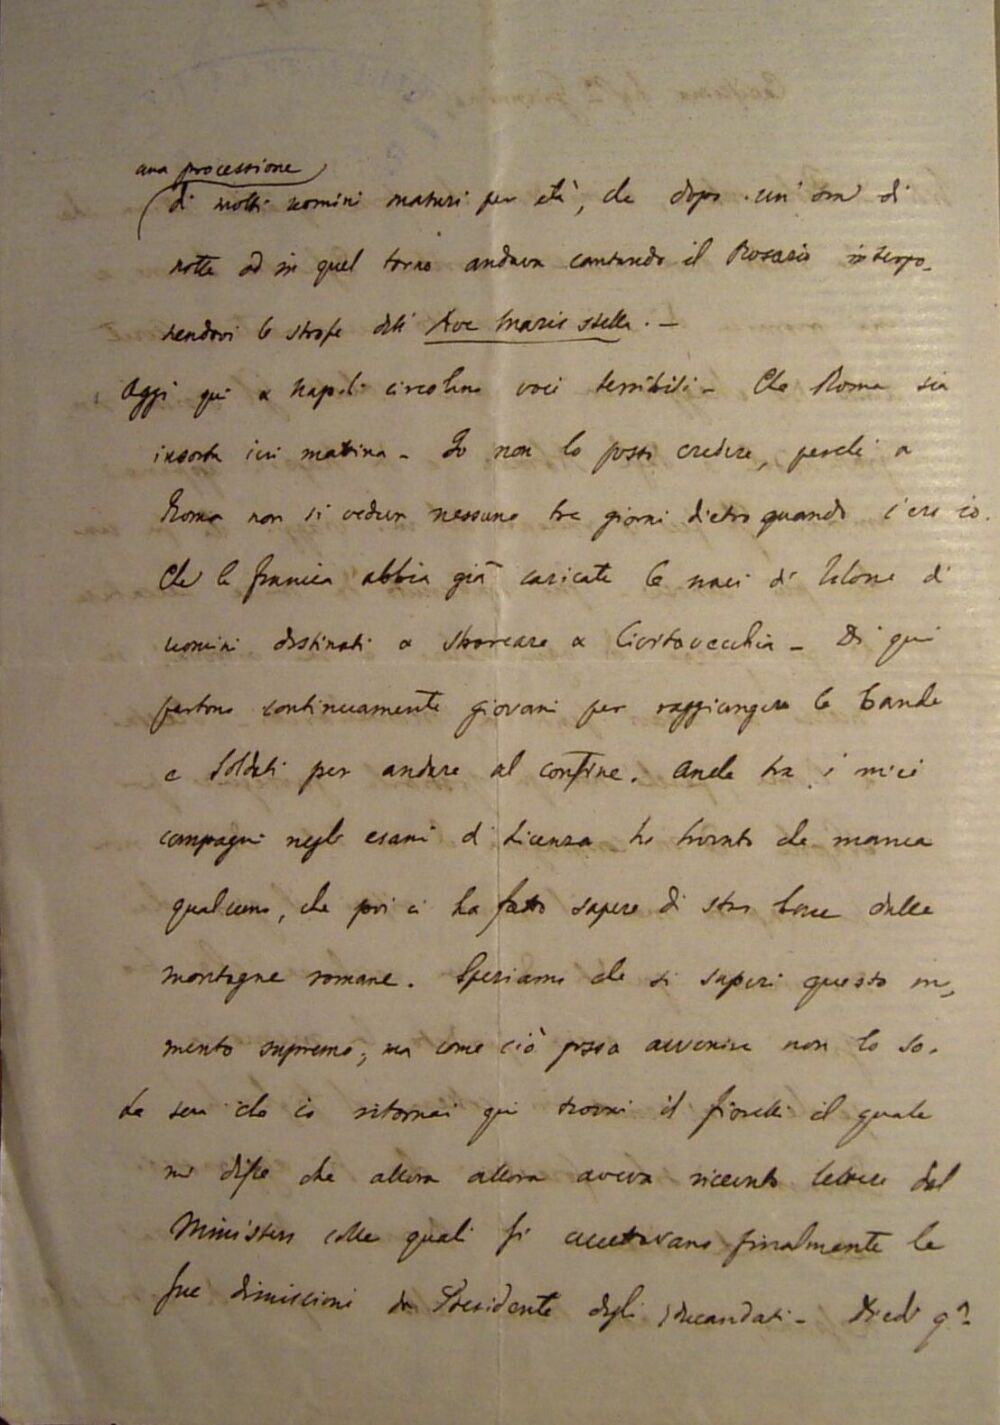 una processione
di molti uomini maturi per età, che dopo un'ora di
notte od in quel torno andava cantando il Rosario interpo-
nendovi le strofe dell' Ave Maris stella. —
Oggi qui a Napoli circolano voci terribili — Che Roma sia
insorta ieri mattina — Io non lo posso credere, perchè a
Roma non si vedeva nessuno tre giorni dietro quando c'ero io.
Che la Francia abbia già caricate le navi di Tolone di
uomini destinati a sbarcare a Civitavecchia — Di qui
partono continuamente giovani per raggiungere le bande
e soldati per andare al confine. Anche tra i miei
compagni negli esami di Licenza ho trovato che manca
qualcuno, che poi ci ha fatto sapere di star bene dalle
montagne romane. Speriamo che si superi questo mo-
mento supremo, ma come ciò possa avvenire non lo so.
La sera che io ritornai qui trovai il Fiorelli il quale
mi disse che allora allora aveva ricevuto lettere dal
Ministero colle quali si accettavano finalmente le
sue dimissioni da Presidente degli Educandati — Diedi